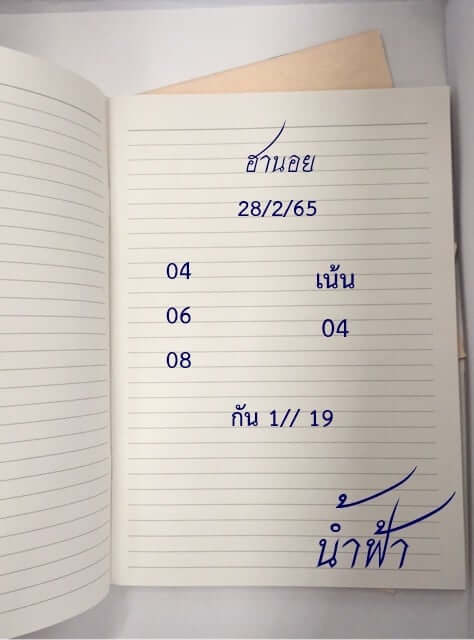 ฮานอย
28/2/65
04
เน้น
06
04
08
กัน 1// 19
น้ำฟ้า